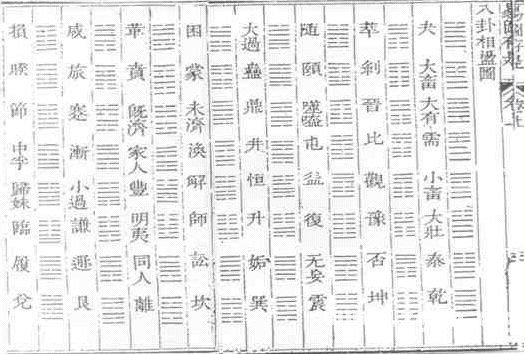 八卦相盪圖
夬 大畜 大有 需 小畜 大壯 泰 乾
萃 剝 晉 比 觀 豫 否 坤
随 頤 噬嗑 屯 益 復 无妄 震
大過 蠱 鼎 井 恒 升 姤 巽
困 蒙 未濟 渙 解 師 訟 坎
革 賁 旣濟 家人 豐 明夷 同人 離
咸 旅 蹇 漸 小過 謙 遯 艮
損 睽 節 中孚 歸妹 臨 履 兌